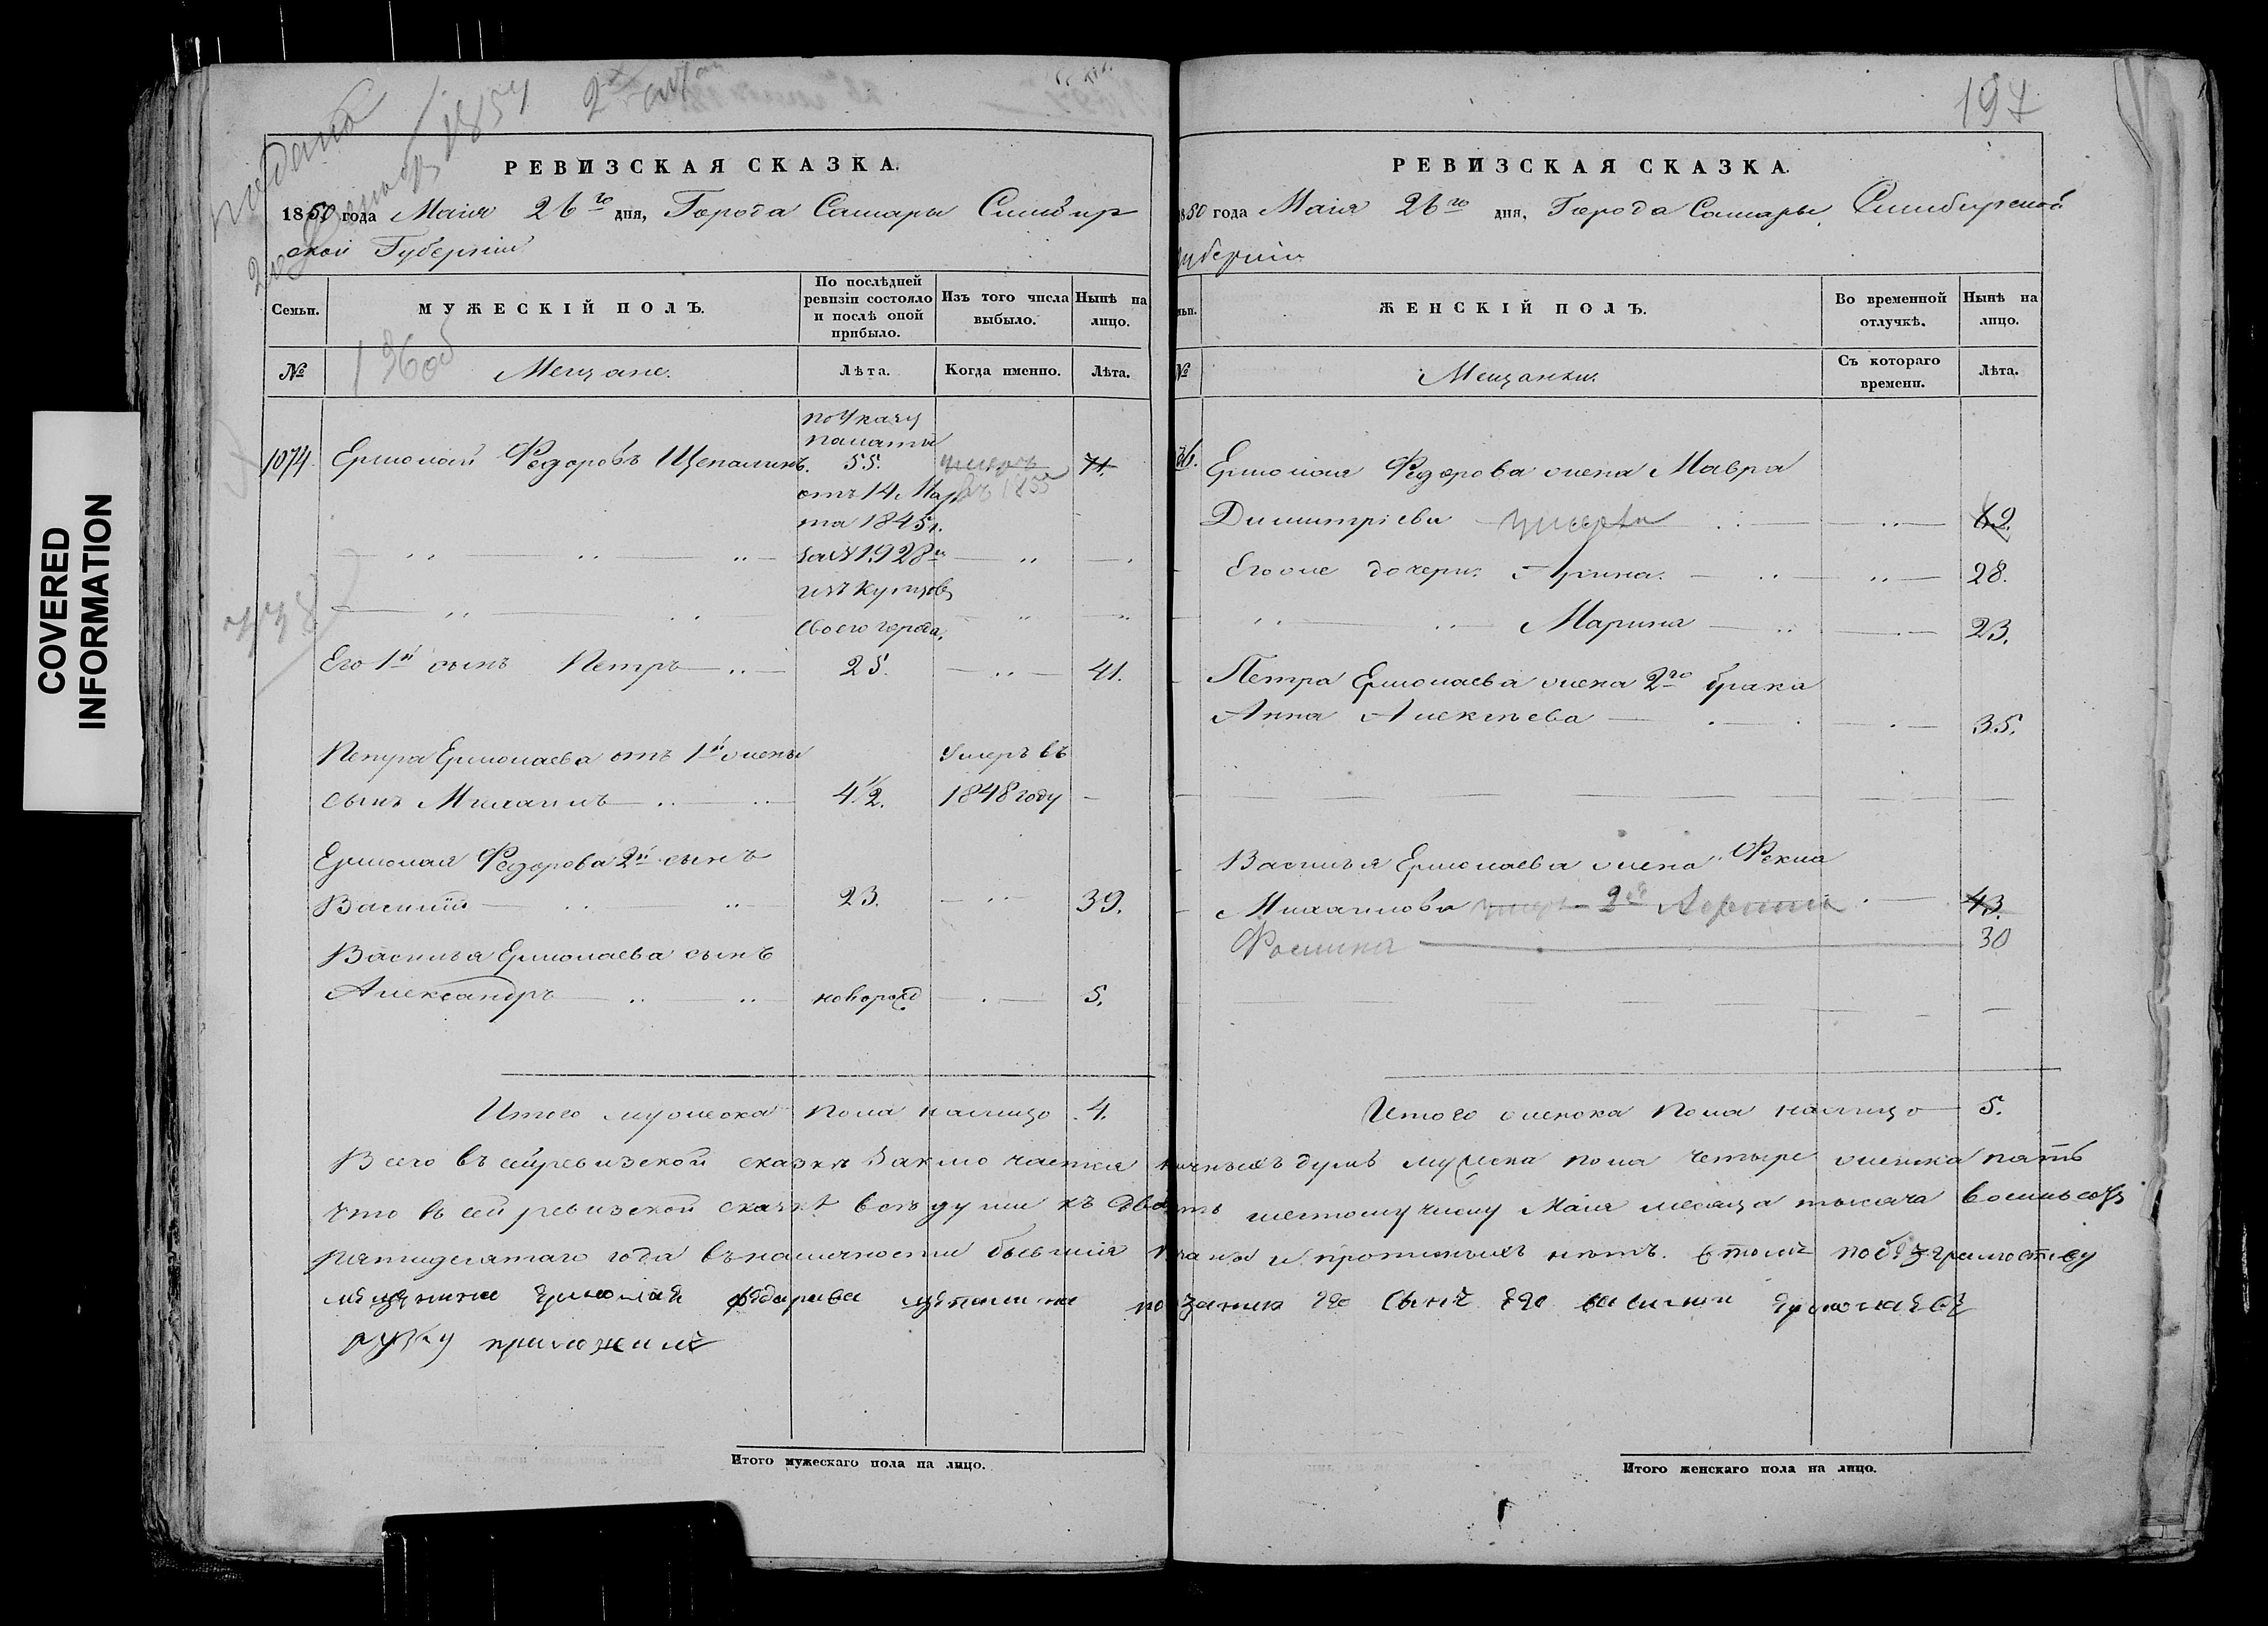 COVERED
INFORMATION
подана
1857
197
РЕВИЗСКАЯ СКАЗКА.
1850 года Маія 26го дня, Города Самары Симбир
ской Губерніи
Семьи.
МУЖЕСКІЙ ПОЛЪ.
По послѣдней
ревизіи состояло
и послѣ оной
прибыло.
Изъ того числа
выбыло.
Нынѣ на
лицо.
№
Мещане.
Лѣта.
Когда именно.
Лѣта.
по указу
палаты
1074. Ермолай Федоровъ Щепалинъ. 55. умеръ 71.
отъ 14 Мар въ 1855
та 1845 г.
за № 1928м
изъ купцовъ
своего города.
738
Его 1й сынъ Петръ 25. 41.
Петра Ермолаева отъ 1й жены Умеръ въ
сынъ Михаилъ 4 1/2. 1848 году
Ермолая Федорова 2й сынъ
Василій 23. 39.
Василья Ермолаева сынъ
Александръ новорожд 5.
Итого мужеска пола налицо 4.
Итого мужескаго пола на лицо.
РЕВИЗСКАЯ СКАЗКА.
1850 года Маія 26го дня, Города Самары, Симбирской
Губерніи
ЖЕНСКІЙ ПОЛЪ.
Во временной
отлучкѣ.
Нынѣ на
лицо.
№
Мещанки.
Съ котораго
времени.
Лѣта.
Ермолая Федорова жена Мавра
Димитріева умерла 62.
Его же дочери: Арина. 28.
Марина 23.
Петра Ермолаева жена 2го брака
Анна Алексѣева 35.
Василья Ермолаева жена Фекла
Михаилова 43.
30
Итого женска пола налицо 5.
Всего въ сей ревизской сказкѣ заключается наличныхъ душъ мужеска пола четыре женска пять
что въ сей ревизской сказкѣ всѣ души къ двадцать шестому числу Маія месяца тысяча восемьсотъ
пятидесятаго года въ наличности бывшія показаны и прописныхъ нѣтъ. в томъ по безграмотству
мещенина Ермолая Федарова щепалина по его сынъ его василии Ермолаевъ
руку приложилъ
Итого женскаго пола на лицо.